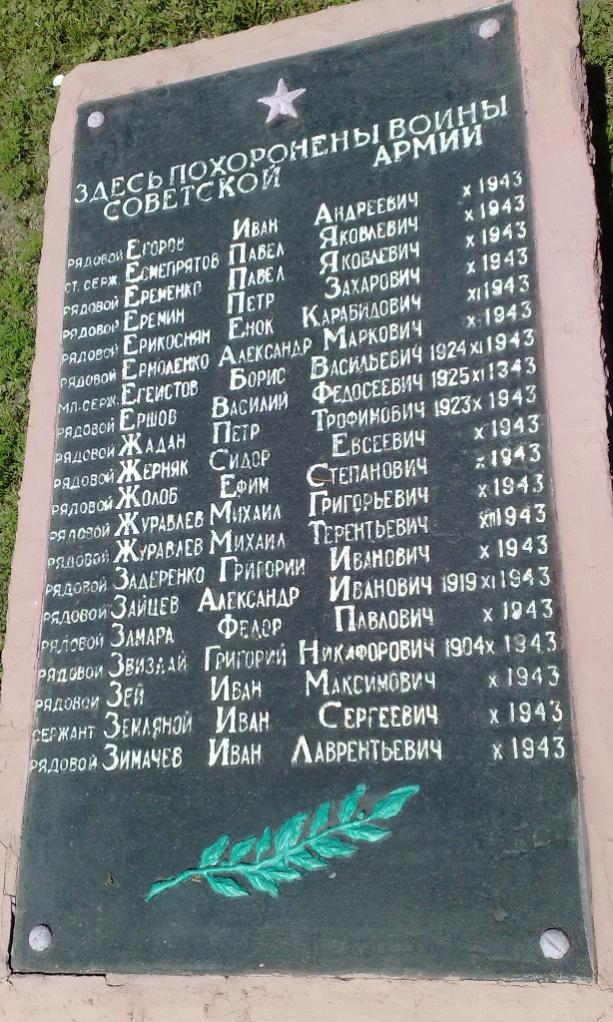 ЗДЕСЬ ПОХОРОНЕНЫ ВОИНЫ
СОВЕТСКОЙ АРМИИ
РЯДОВОЙ ЕГОРОВ ИВАН АНДРЕЕВИЧ X 1943
СТ. СЕРЖ. ЕСМЕПРЯТОВ ПАВЕЛ ЯКОВЛЕВИЧ X 1943
РЯДОВОЙ ЕРЕМЕНКО ПАВЕЛ ЯКОВЛЕВИЧ X 1943
РЯДОВОЙ ЕРЕМИН ПЕТР ЗАХАРОВИЧ X 1943
РЯДОВОЙ ЕРИКОСНЯН ЕНОК КАРАБИДОВИЧ XI 1943
РЯДОВОЙ ЕРМОЛЕНКО АЛЕКСАНДР МАРКОВИЧ X 1943
МЛ. СЕРЖ. ЕГЕИСТОВ БОРИС ВАСИЛЬЕВИЧ 1924 XI 1943
РЯДОВОЙ ЕРШОВ ВАСИЛИЙ ФЕДОСЕЕВИЧ 1925 XI 1943
РЯДОВОЙ ЖАДАН ПЕТР ТРОФИМОВИЧ 1923 X 1943
РЯДОВОЙ ЖЕРНЯК СИДОР ЕВСЕЕВИЧ X 1943
РЯДОВОЙ ЖОЛОБ ЕФИМ СТЕПАНОВИЧ X 1943
РЯДОВОЙ ЖУРАВЛЕВ МИХАИЛ ГРИГОРЬЕВИЧ X 1943
РЯДОВОЙ ЖУРАВЛЕВ МИХАИЛ ТЕРЕНТЬЕВИЧ XII 1943
РЯДОВОЙ ЗАДЕРЕНКО ГРИГОРИИ ИВАНОВИЧ X 1943
РЯДОВОЙ ЗАЙЦЕВ АЛЕКСАНДР ИВАНОВИЧ 1919 XI 1943
РЯДОВОЙ ЗАМАРА ФЕДОР ПАВЛОВИЧ X 1943
РЯДОВОЙ ЗВИЗДАЙ ГРИГОРИЙ НИКАФОРОВИЧ 1904 X 1943
РЯДОВОЙ ЗЕЙ ИВАН МАКСИМОВИЧ X 1943
СЕРЖАНТ ЗЕМЛЯНОЙ ИВАН СЕРГЕЕВИЧ X 1943
РЯДОВОЙ ЗИМАЧЕВ ИВАН ЛАВРЕНТЬЕВИЧ X 1943